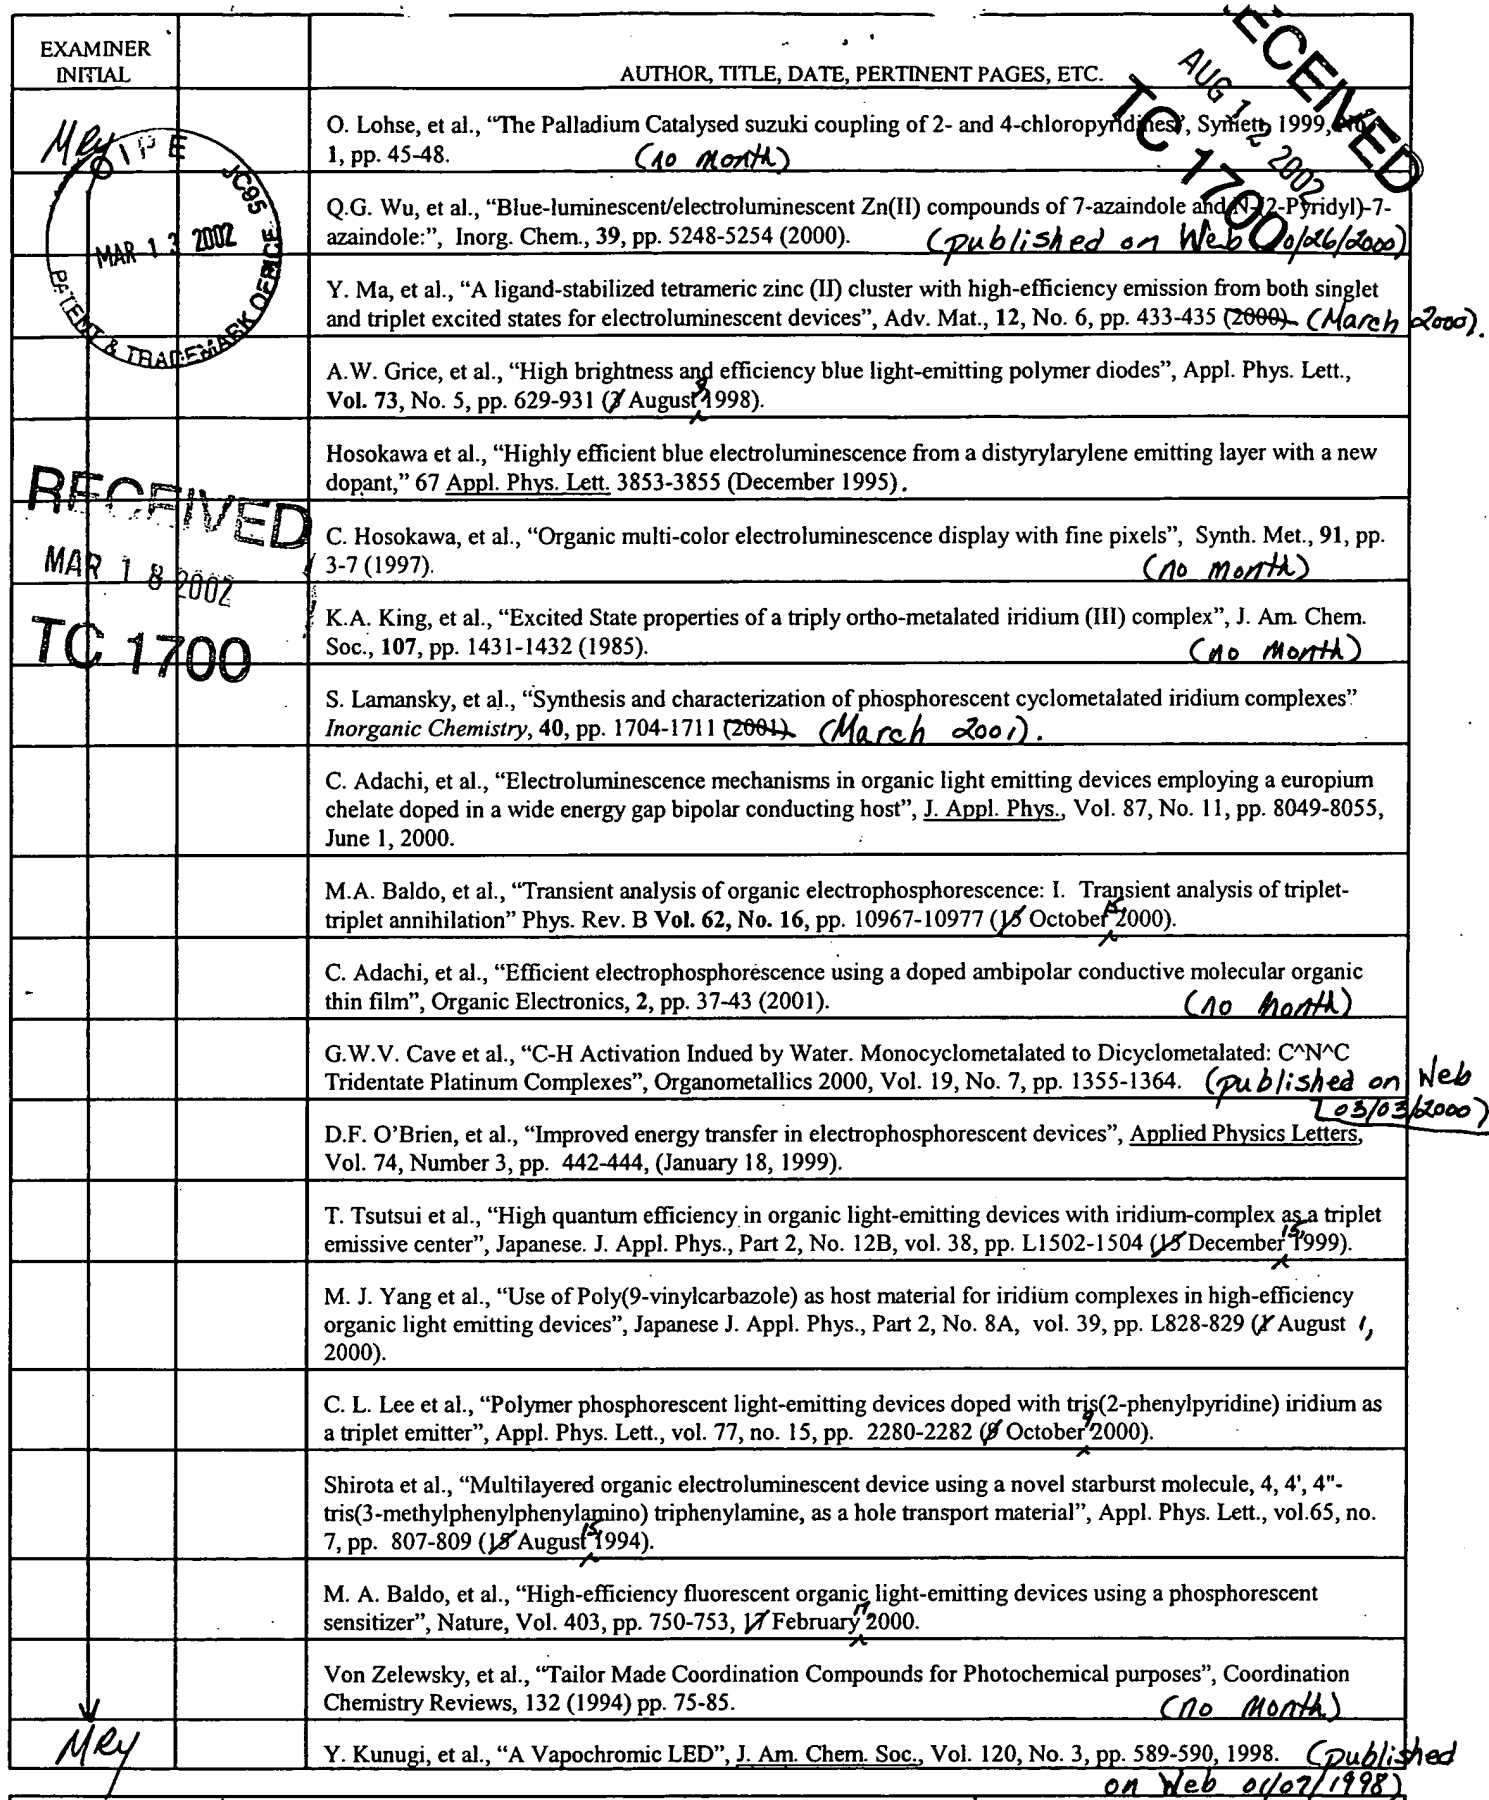 EXAMINER
INITIAL
AUTHOR, TITLE, DATE, PERTINENT PAGES, ETC.
ECEIVED
AUG 12 2002
TC 1700
MRy
O. Lohse, et al., “The Palladium Catalysed suzuki coupling of 2- and 4-chloropyridines”, Synlett, 1999, No.
1, pp. 45-48. (no month)
OIPE JC95
MAR 13 2002
PATENT & TRADEMARK OFFICE
Q.G. Wu, et al., “Blue-luminescent/electroluminescent Zn(II) compounds of 7-azaindole and N-(2-Pyridyl)-7-
azaindole:”, Inorg. Chem., 39, pp. 5248-5254 (2000). (published on Web 10/26/2000)
Y. Ma, et al., “A ligand-stabilized tetrameric zinc (II) cluster with high-efficiency emission from both singlet
and triplet excited states for electroluminescent devices”, Adv. Mat., 12, No. 6, pp. 433-435 (2000). (March 2000).
A.W. Grice, et al., “High brightness and efficiency blue light-emitting polymer diodes”, Appl. Phys. Lett.,
Vol. 73, No. 5, pp. 629-931 (3 August 1998).
Hosokawa et al., “Highly efficient blue electroluminescence from a distyrylarylene emitting layer with a new
dopant,” 67 Appl. Phys. Lett. 3853-3855 (December 1995).
RECEIVED
MAR 18 2002
TC 1700
C. Hosokawa, et al., “Organic multi-color electroluminescence display with fine pixels”, Synth. Met., 91, pp.
3-7 (1997). (no month)
K.A. King, et al., “Excited State properties of a triply ortho-metalated iridium (III) complex”, J. Am. Chem.
Soc., 107, pp. 1431-1432 (1985). (no month)
S. Lamansky, et al., “Synthesis and characterization of phosphorescent cyclometalated iridium complexes”
Inorganic Chemistry, 40, pp. 1704-1711 (2001). (March 2001).
C. Adachi, et al., “Electroluminescence mechanisms in organic light emitting devices employing a europium
chelate doped in a wide energy gap bipolar conducting host”, J. Appl. Phys., Vol. 87, No. 11, pp. 8049-8055,
June 1, 2000.
M.A. Baldo, et al., “Transient analysis of organic electrophosphorescence: I. Transient analysis of triplet-
triplet annihilation” Phys. Rev. B Vol. 62, No. 16, pp. 10967-10977 (15 October 15, 2000).
C. Adachi, et al., “Efficient electrophosphorescence using a doped ambipolar conductive molecular organic
thin film”, Organic Electronics, 2, pp. 37-43 (2001). (no month)
G.W.V. Cave et al., “C-H Activation Indued by Water. Monocyclometalated to Dicyclometalated: C^N^C
Tridentate Platinum Complexes”, Organometallics 2000, Vol. 19, No. 7, pp. 1355-1364. (published on Web
03/03/2000)
D.F. O’Brien, et al., “Improved energy transfer in electrophosphorescent devices”, Applied Physics Letters,
Vol. 74, Number 3, pp. 442-444, (January 18, 1999).
T. Tsutsui et al., “High quantum efficiency in organic light-emitting devices with iridium-complex as a triplet
emissive center”, Japanese. J. Appl. Phys., Part 2, No. 12B, vol. 38, pp. L1502-1504 (15 December 15, 1999).
M. J. Yang et al., “Use of Poly(9-vinylcarbazole) as host material for iridium complexes in high-efficiency
organic light emitting devices”, Japanese J. Appl. Phys., Part 2, No. 8A, vol. 39, pp. L828-829 (1 August 1,
2000).
C. L. Lee et al., “Polymer phosphorescent light-emitting devices doped with tris(2-phenylpyridine) iridium as
a triplet emitter”, Appl. Phys. Lett., vol. 77, no. 15, pp. 2280-2282 (9 October 9, 2000).
Shirota et al., “Multilayered organic electroluminescent device using a novel starburst molecule, 4, 4', 4"-
tris(3-methylphenylphenylamino) triphenylamine, as a hole transport material”, Appl. Phys. Lett., vol.65, no.
7, pp. 807-809 (15 August 15, 1994).
M. A. Baldo, et al., “High-efficiency fluorescent organic light-emitting devices using a phosphorescent
sensitizer”, Nature, Vol. 403, pp. 750-753, 17 February 17, 2000.
Von Zelewsky, et al., “Tailor Made Coordination Compounds for Photochemical purposes”, Coordination
Chemistry Reviews, 132 (1994) pp. 75-85. (no month)
MRy
Y. Kunugi, et al., “A Vapochromic LED”, J. Am. Chem. Soc., Vol. 120, No. 3, pp. 589-590, 1998. (published
on Web 01/07/1998)